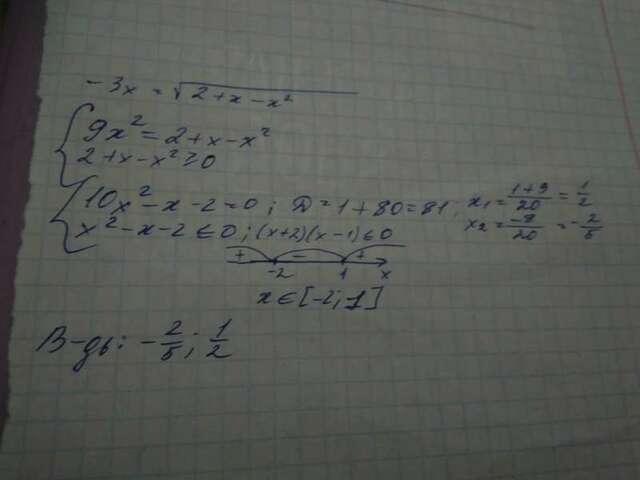 -3x = √2+x-x²
9x² = 2+x-x²
2+x-x² ≥ 0
10x²-x-2=0; D=1+80=81; x₁=(1+9)/20=1/2
x²-x-2≤0; (x+2)(x-1)≤0 x₂=-8/20=-2/5
+ - +
-2 1 x
x∈[-2;1]
В-дь: -2/5; 1/2